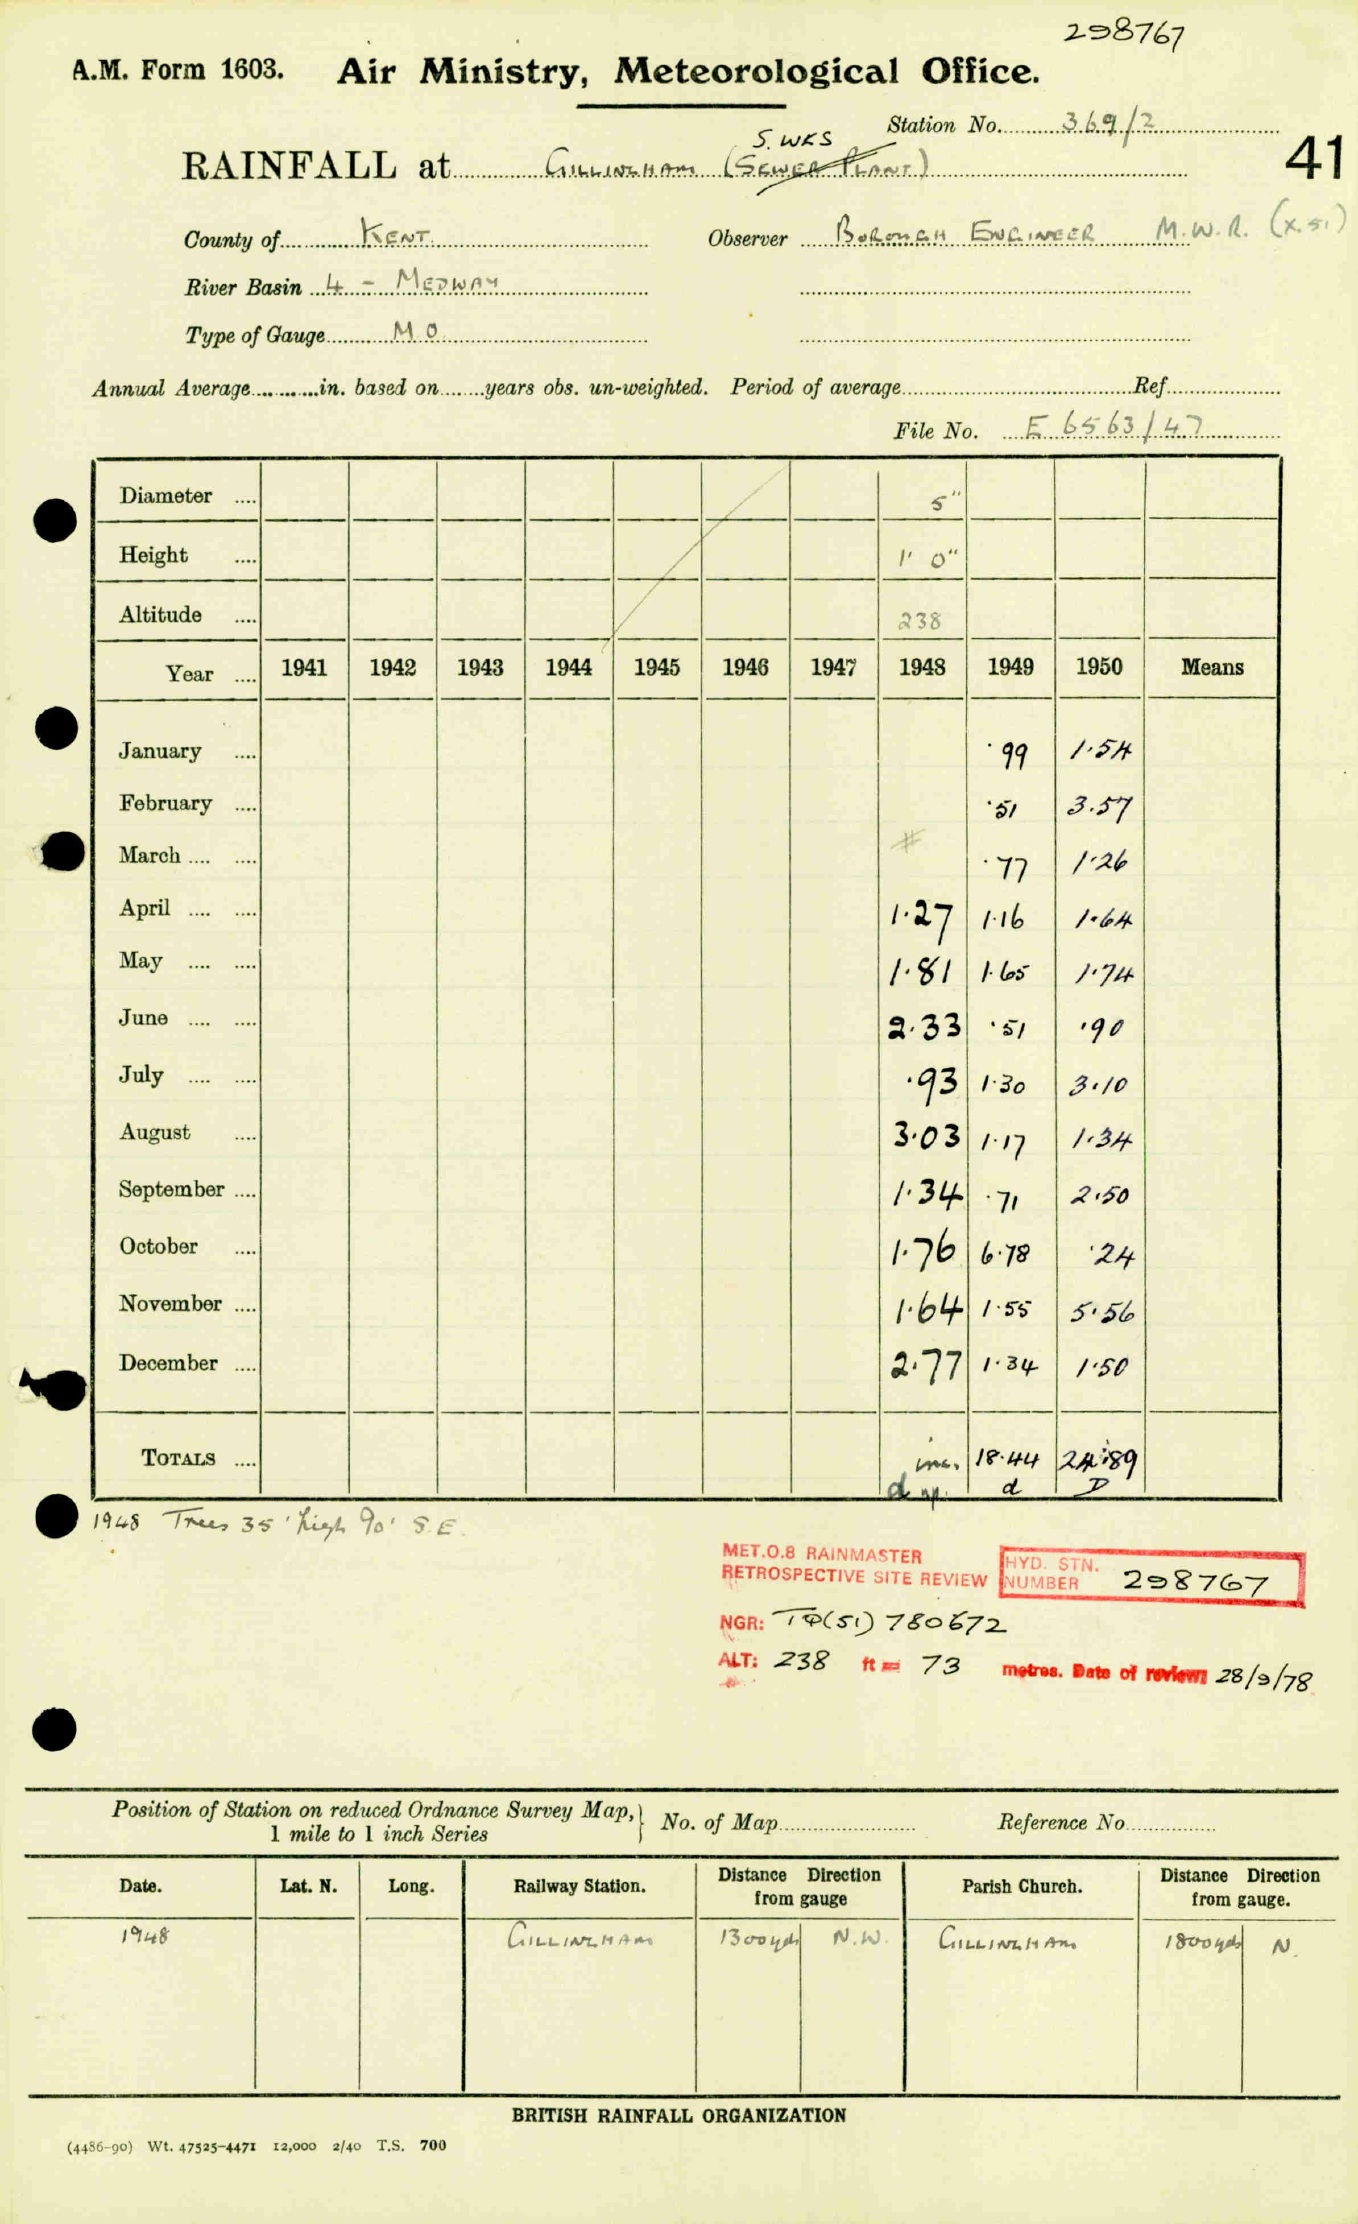 298767
A.M. Form 1603. Air Ministry, Meteorological Office.
Station No. 369/2
S. WKS
RAINFALL at GILLINGHAM (SEWER PLANT)
41
County of KENT Observer BOROUGH ENGINEER M.W.R. (X.51)
River Basin 4 - MEDWAY
Type of Gauge M O
Annual Average in. based on years obs. un-weighted. Period of average Ref.
File No. E 6563/47
Diameter 5"
Height 1' 0"
Altitude 238
Year 1941 1942 1943 1944 1945 1946 1947 1948 1949 1950 Means
January .99 1.54
February .51 3.57
March # .77 1.26
April 1.27 1.16 1.64
May 1.81 1.65 1.74
June 2.33 .51 .90
July .93 1.30 3.10
August 3.03 1.17 1.34
September 1.34 .71 2.50
October 1.76 6.78 .24
November 1.64 1.55 5.56
December 2.77 1.34 1.50
TOTALS inc. 18.44 24.89
d d D
1948 Trees 35' high 90' S.E.
MET.O.8 RAINMASTER
RETROSPECTIVE SITE REVIEW
HYD. STN.
NUMBER 298767
NGR: TQ(51) 780672
ALT: 238 ft = 73 metres. Date of review: 28/9/78
Position of Station on reduced Ordnance Survey Map,
1 mile to 1 inch Series
No. of Map Reference No.
Date. Lat. N. Long. Railway Station. Distance Direction from gauge Parish Church. Distance Direction from gauge.
1948 GILLINGHAM 1300yds N.W. GILLINGHAM 1800yds N.
BRITISH RAINFALL ORGANIZATION
(4486-90) Wt. 47525-4471 12,000 2/40 T.S. 700